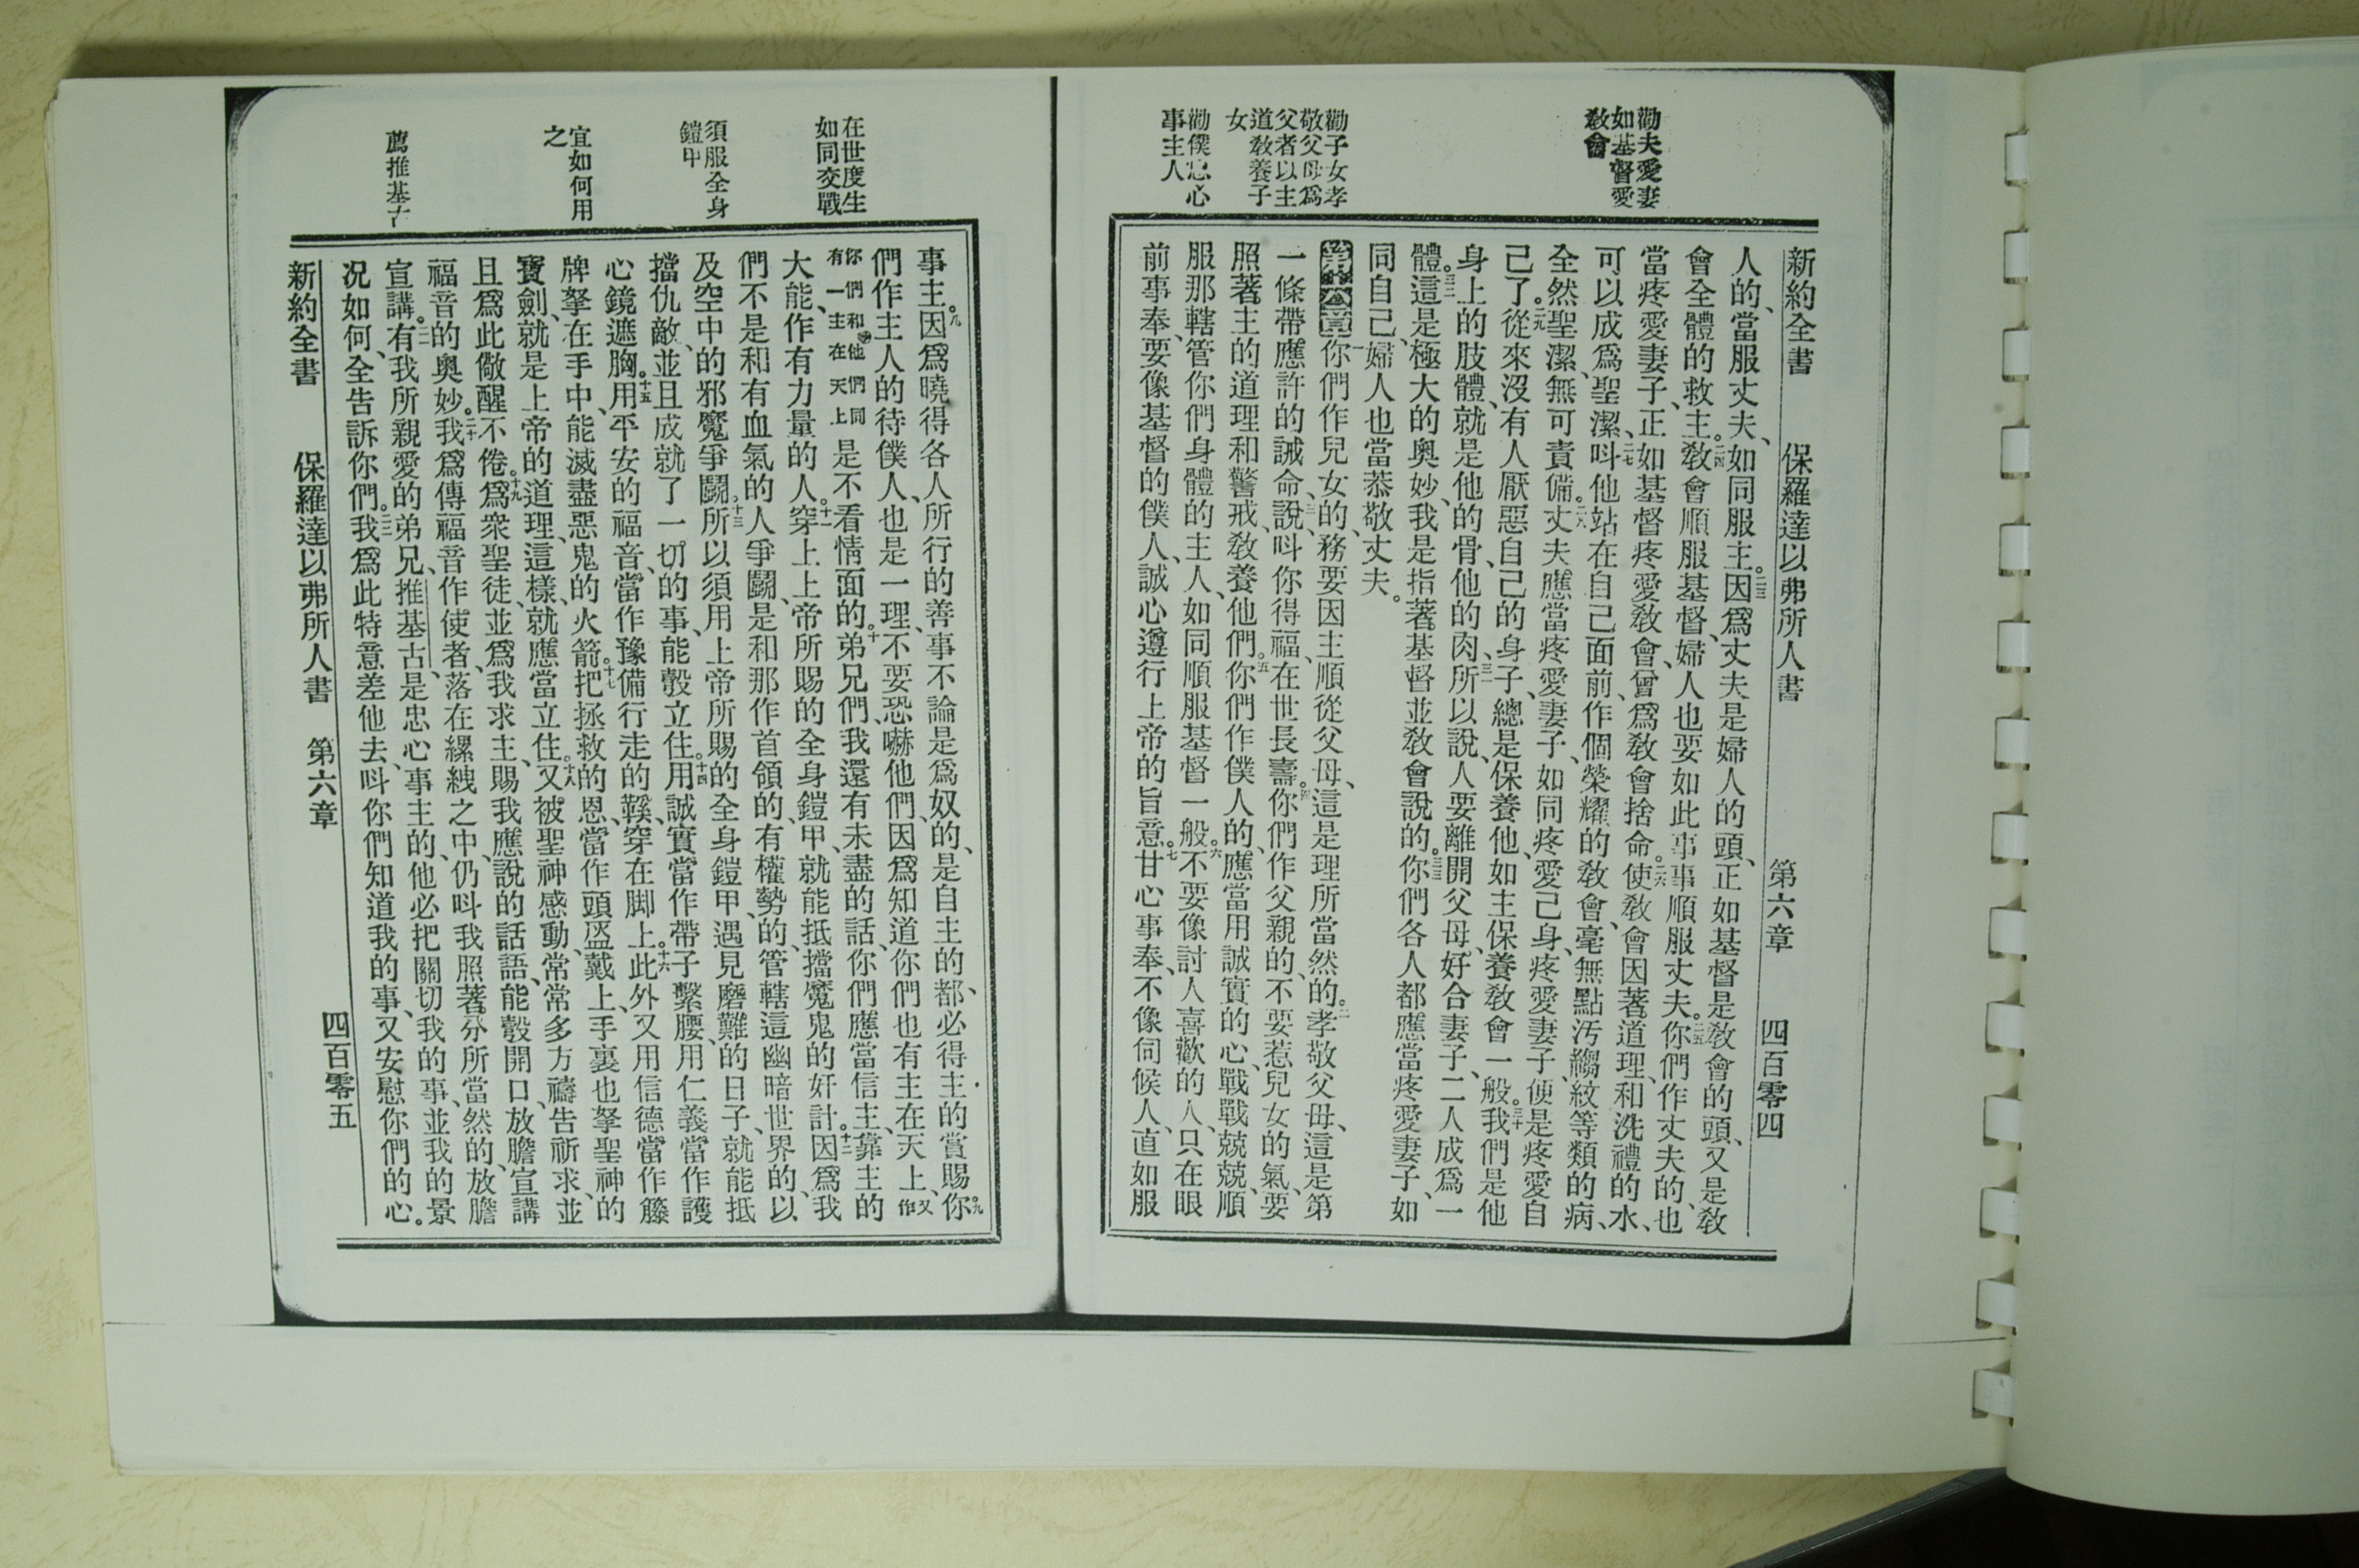 勸夫愛妻
如基督愛
敎會
勸子女孝
敬父母爲
父者以主
道敎養子
女
勸僕忠心
事主人
新約全書 保羅達以弗所人書 第六章 四百零四
人的、當服丈夫、如同服主。二三因爲丈夫是婦人的頭、正如基督是敎會的頭、又是敎
會全體的救主。二四敎會順服基督、婦人也要如此事事順服丈夫。二五你們作丈夫的、也
當疼愛妻子、正如基督疼愛敎會、曾爲敎會捨命。二六使敎會因著道理、和洗禮的水、
可以成爲聖潔、二七呌他站在自己面前、作個榮耀的敎會、毫無點汚縐紋等類的病、
全然聖潔、無可責備。二八丈夫應當疼愛妻子、如同疼愛己身、疼愛妻子、便是疼愛自
己了。二九從來沒有人厭惡自己的身子、總是保養他、如主保養敎會一般。三十我們是他
身上的肢體、就是他的骨、他的肉、三一所以說、人要離開父母、好合妻子、二人成爲一
體。三二這是極大的奧妙、我是指著基督並敎會說的。三三你們各人都應當疼愛妻子、如
同自己、婦人也當恭敬丈夫。
第六章一你們作兒女的、務要因主順從父母、這是理所當然的。二孝敬父母、這是第
一條帶應許的誡命、三說、呌你得福、在世長壽。四你們作父親的、不要惹兒女的氣、要
照著主的道理和警戒、敎養他們。五你們作僕人的、應當用誠實的心、戰戰兢兢、順
服那轄管你們身體的主人、如同順服基督一般。六不要像討人喜歡的人、只在眼
前事奉、要像基督的僕人、誠心遵行上帝的旨意。七甘心事奉、不像伺候人、直如服
在世度生
如同交戰
須服全身
鎧甲
宜如何用
之
薦推基古
事主。八因爲曉得各人所行的善事不論是爲奴的、是自主的、都必得主的賞賜。九你
們作主人的待僕人、也是一理、不要恐嚇他們、因爲知道你們也有主在天上、又作
你們和他們同
有一主在天上
是不看情面的。十弟兄們、我還有未盡的話、你們應當信主、靠主的
大能、作有力量的人。十一穿上上帝所賜的全身鎧甲、就能抵擋魔鬼的奸計。十二因爲我
們不是和有血氣的人爭鬬、是和那作首領的、有權勢的、管轄這幽暗世界的、以
及空中的邪魔爭鬬。十三所以須用上帝所賜的全身鎧甲、遇見磨難的日子、就能抵
擋仇敵、並且成就了一切的事、能彀立住。十四用誠實當作帶子繫腰、用仁義當作護
心鏡遮胸。十五用平安的福音、當作豫備行走的鞵、穿在脚上。十六此外又用信德當作籐
牌拏在手中、能滅盡惡鬼的火箭。十七把拯救的恩、當作頭盔戴上、手裏也拏聖神的
寶劍、就是上帝的道理、這樣、就應當立住。十八又被聖神感動、常常多方禱吿祈求、並
且爲此儆醒不倦。十九爲衆聖徒、並爲我求主、賜我應說的話語、能彀開口、放膽宣講
福音的奧妙。二十我爲傳福音作使者、落在縲絏之中、仍呌我照著分所當然的、放膽
宣講。二一有我所親愛的弟兄、推基古、是忠心事主的、他必把關切我的事、並我的景
況如何、全告訴你們。二二我爲此特意差他去、呌你們知道我的事、又安慰你們的心。
新約全書 保羅達以弗所人書 第六章 四百零五